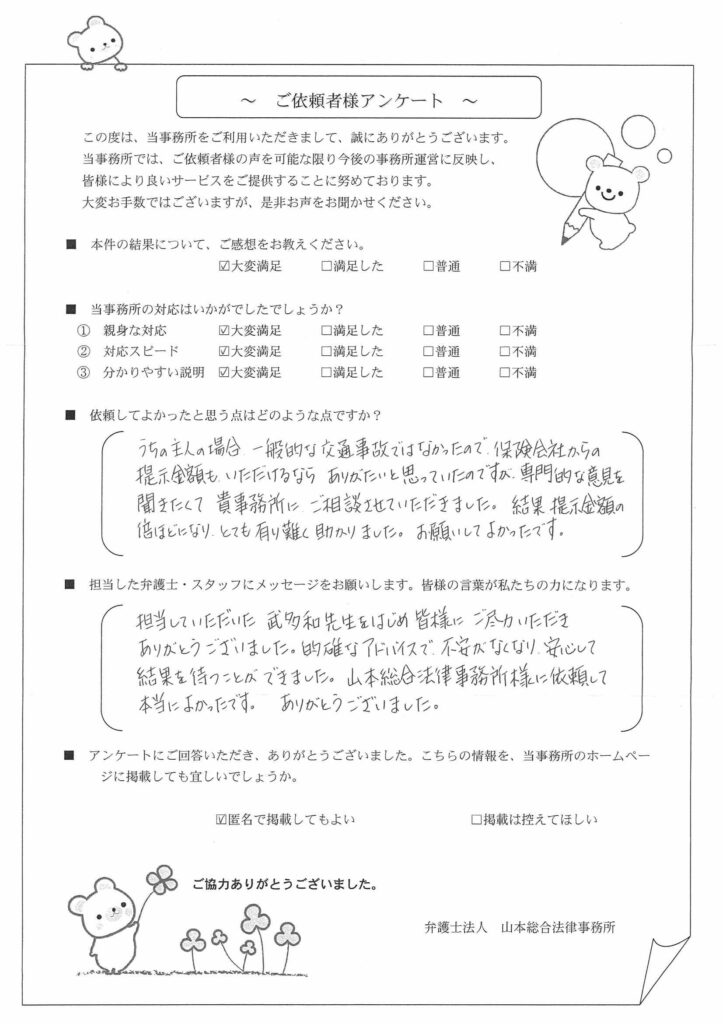 ～　ご依頼者様アンケート　～
この度は、当事務所をご利用いただきまして、誠にありがとうございます。
当事務所では、ご依頼者様の声を可能な限り今後の事務所運営に反映し、
皆様により良いサービスをご提供することに努めております。
大変お手数ではございますが、是非お声をお聞かせください。
■　本件の結果について、ご感想をお教えください。
☑大変満足　□満足した　□普通　□不満
■　当事務所の対応はいかがでしたでしょうか？
①　親身な対応　☑大変満足　□満足した　□普通　□不満
②　対応スピード　☑大変満足　□満足した　□普通　□不満
③　分かりやすい説明　☑大変満足　□満足した　□普通　□不満
■　依頼してよかったと思う点はどのような点ですか？
うちの主人の場合、一般的な交通事故ではなかったので、保険会社からの
提示金額も、いただけるなら ありがたいと思っていたのですが、専門的な意見を
聞きたくて 貴事務所に ご相談させていただきました。 結果 提示金額の
倍ほどになり、とても有り難く助かりました。お願いしてよかったです。
■　担当した弁護士・スタッフにメッセージをお願いします。皆様の言葉が私たちの力になります。
担当していただいた 武多和先生をはじめ 皆様に ご尽力いただき
ありがとうございました。的確なアドバイスで、不安がなくなり、安心して
結果を待つことが できました。山本総合法律事務所様に依頼して
本当によかったです。　ありがとうございました。
■　アンケートにご回答いただき、ありがとうございました。こちらの情報を、当事務所のホームペー
ジに掲載しても宜しいでしょうか。
☑匿名で掲載してもよい　□掲載は控えてほしい
ご協力ありがとうございました。
弁護士法人　山本総合法律事務所